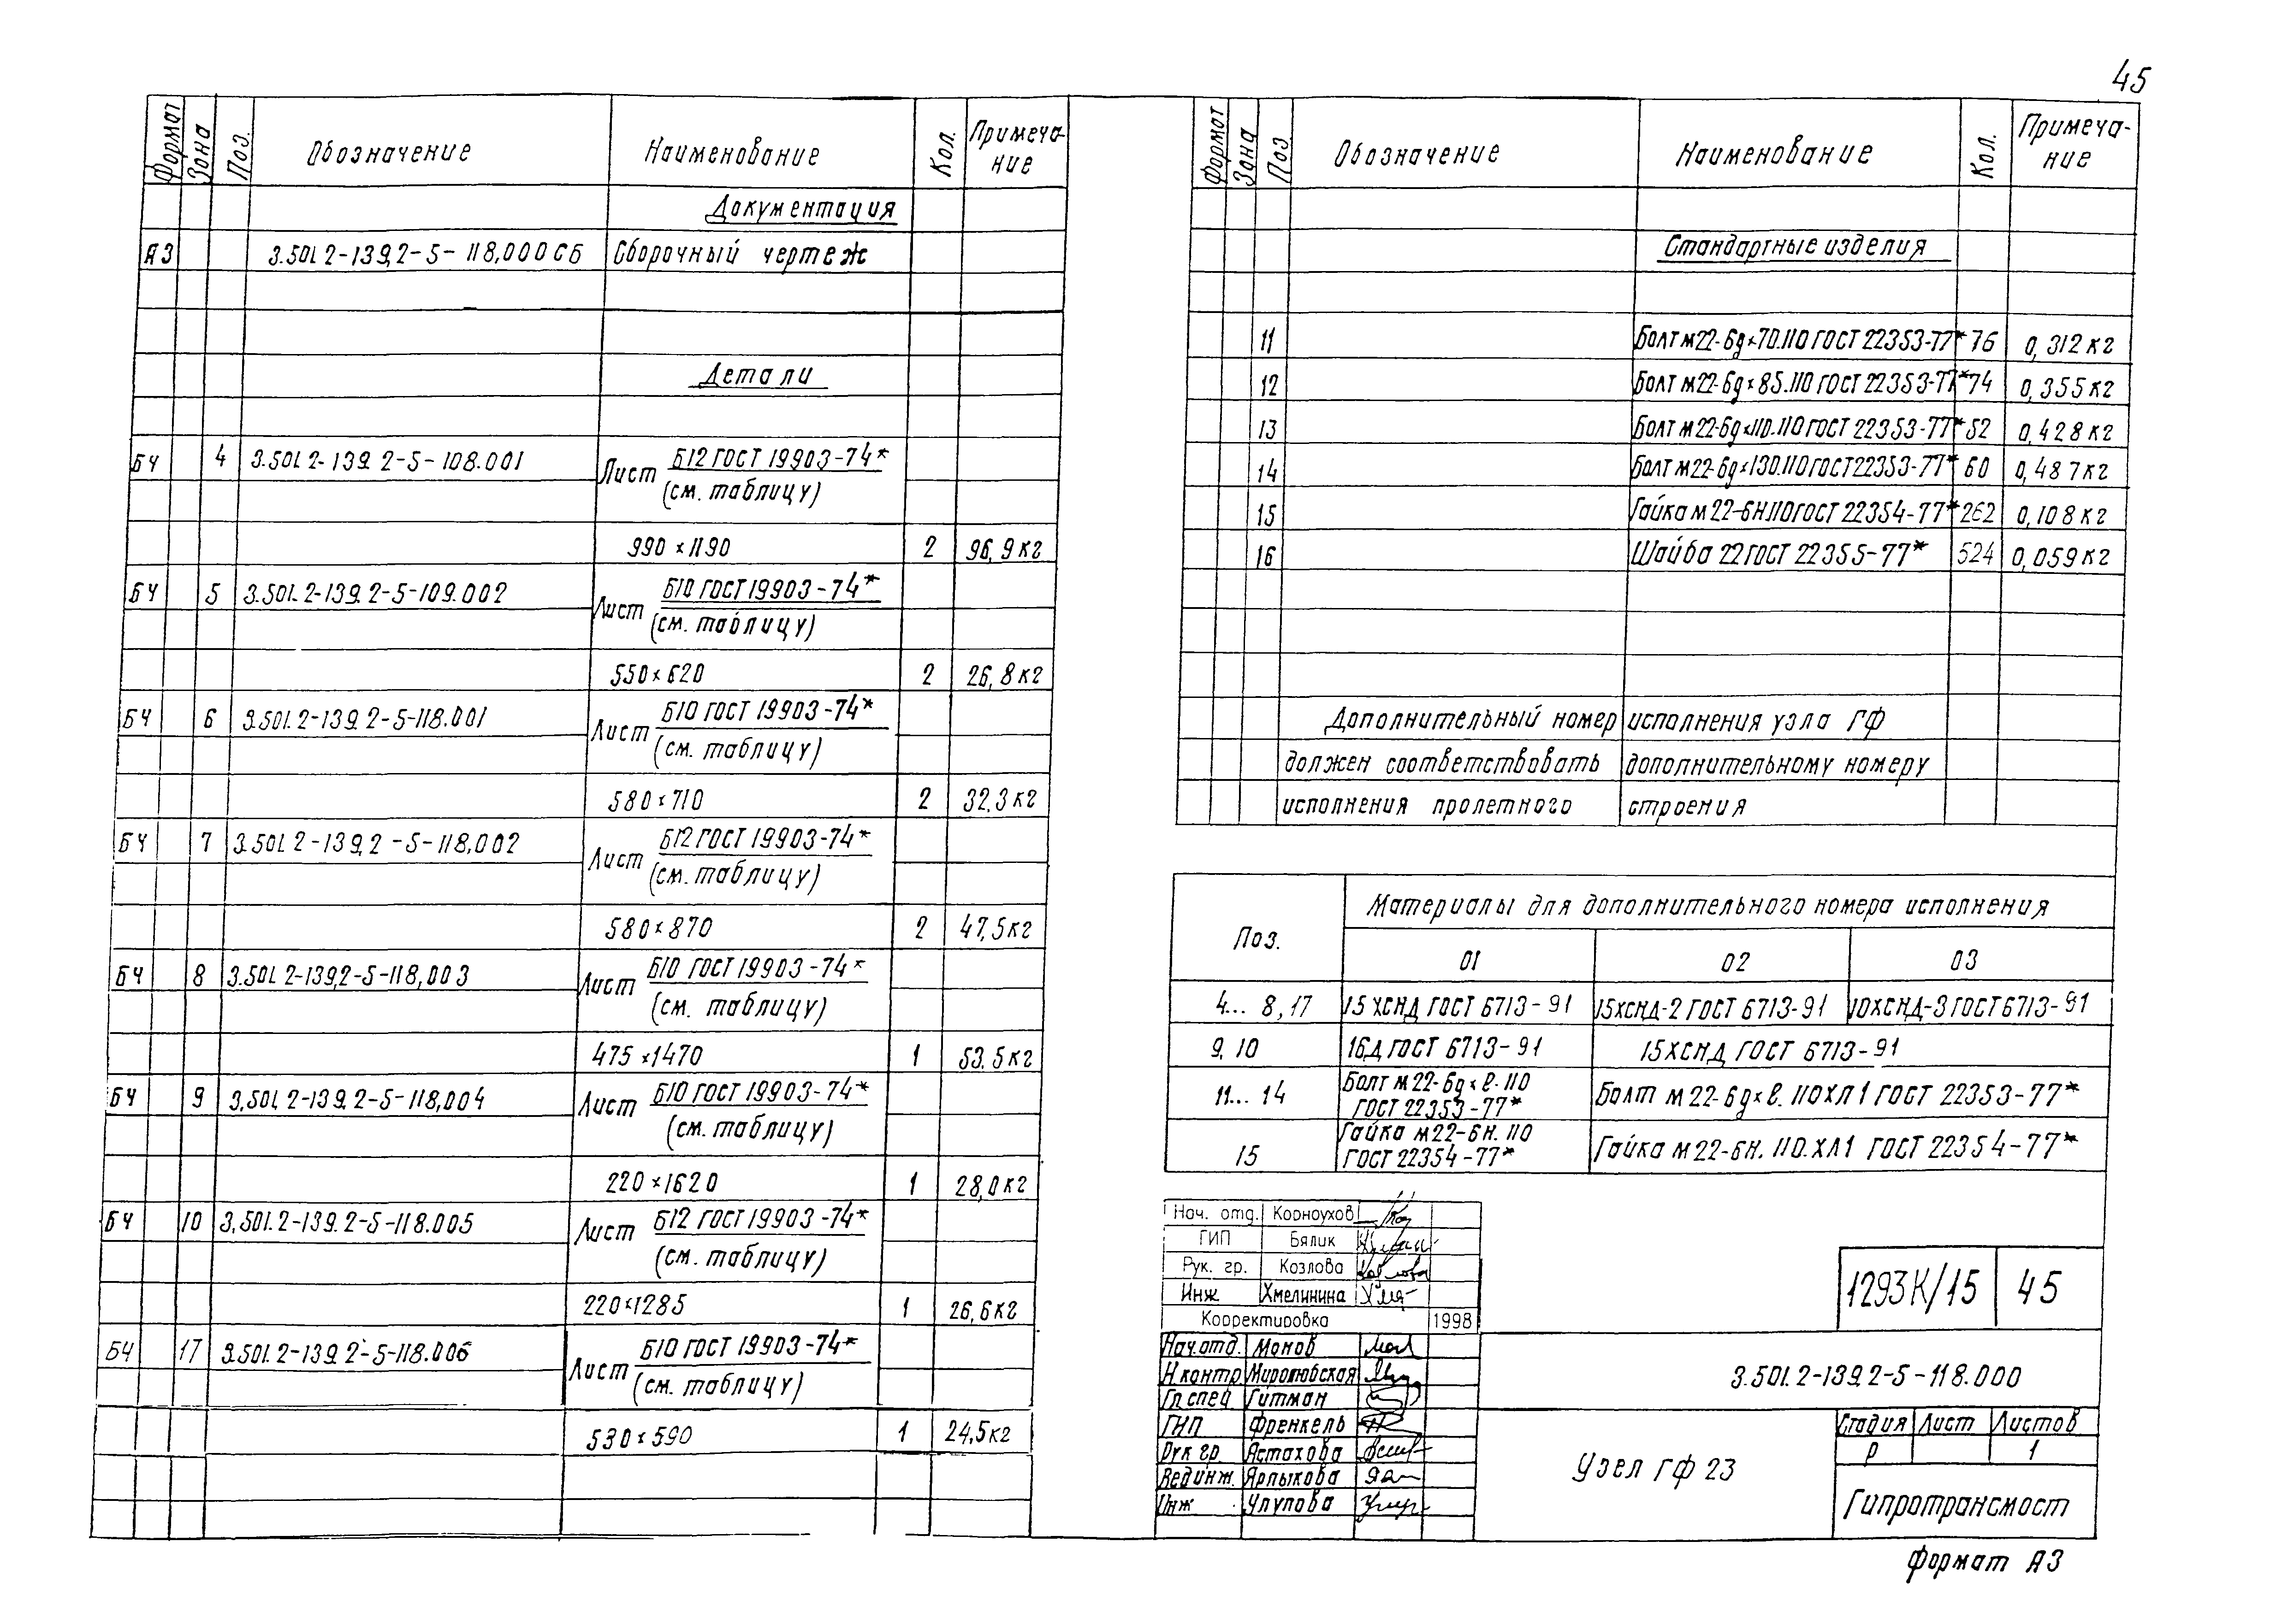 45
Формат Зона Поз. Обозначение Наименование Кол. Примеча-ние
Документация
А3 3.501.2-139.2-5-118.000СБ Сборочный чертеж
Детали
БЧ 4 3.501.2-139.2-5-108.001 Лист Б12 ГОСТ 19903-74*
(см. таблицу)
990×1190 2 96,9кг
БЧ 5 3.501.2-139.2-5-109.002 Лист Б10 ГОСТ 19903-74*
(см. таблицу)
550×620 2 26,8кг
БЧ 6 3.501.2-139.2-5-118.001 Лист Б10 ГОСТ 19903-74*
(см. таблицу)
580×710 2 32.3кг
БЧ 7 3.501.2-139.2-5-118.002 Лист Б12 ГОСТ 19903-74*
(см. таблицу)
580×870 2 47,5кг
БЧ 8 3.501.2-139.2-5-118.003 Лист Б10 ГОСТ 19903-74*
(см. таблицу)
475×1470 1 53.5кг
БЧ 9 3.501.2-139.2-5-118.004 Лист Б10 ГОСТ 19903-74*
(см. таблицу)
220×1620 1 28,0кг
БЧ 10 3.501.2-139.2-5-118.005 Лист Б12 ГОСТ 19903-74*
(см. таблицу)
220×1285 1 26,6кг
БЧ 17 3.501.2-139.2-5-118.006 Лист Б10 ГОСТ 19903-74*
(см. таблицу)
530×590 1 24,5кг
Формат Зона Поз. Обозначение Наименование Кол. Примеча-ние
Стандартные изделия
11 Болт М22-6g×70.110 ГОСТ 22353-77* 76 0,312кг
12 Болт М22-6g×85.110 ГОСТ 22353-77* 74 0,355кг
13 Болт М22-6g×110.110 ГОСТ 22353-77* 52 0,428кг
14 Болт М22-6g×130.110 ГОСТ 22353-77* 60 0,487кг
15 Гайка М22-6Н.110 ГОСТ 22354-77* 262 0,108кг
16 Шайба 22 ГОСТ 22355-77* 524 0,059кг
Дополнительный номер исполнения узла ГФ
должен соответствовать дополнительному номеру
исполнения пролетного строения
Поз. Материалы для дополнительного номера исполнения
01 02 03
4... 8,17 15ХСНД ГОСТ 6713-91 15ХСНД-2 ГОСТ 6713-91 10ХСНД-3 ГОСТ 6713-91
9, 10 16Д ГОСТ 6713-91 15ХСНД ГОСТ 6713-91
11... 14 Болт М22-6g×ℓ.110
ГОСТ 22353-77* Болт М22-6g×ℓ.110ХЛ1 ГОСТ 22353-77*
15 Гайка М22-6Н.110
ГОСТ 22354-77* Гайка М22-6Н.110.ХЛ1 ГОСТ 22354-77*
Нач. отд. Корноухов
ГИП Бялик
Рук. гр. Козлова
Инж Хмелинина
Корректировка 1998
Нач.отд. Монов
Н контр Миролюбская
Гл.спец. Гитман
ГИП Френкель
Рук гр. Астахова
Вед инж. Ярлыкова
Инж Улупова
1293К/15 45
3.501.2-139.2-5-118.000
Узел ГФ 23
Стадия Лист Листов
Р 1
Гипротрансмост
Формат А3